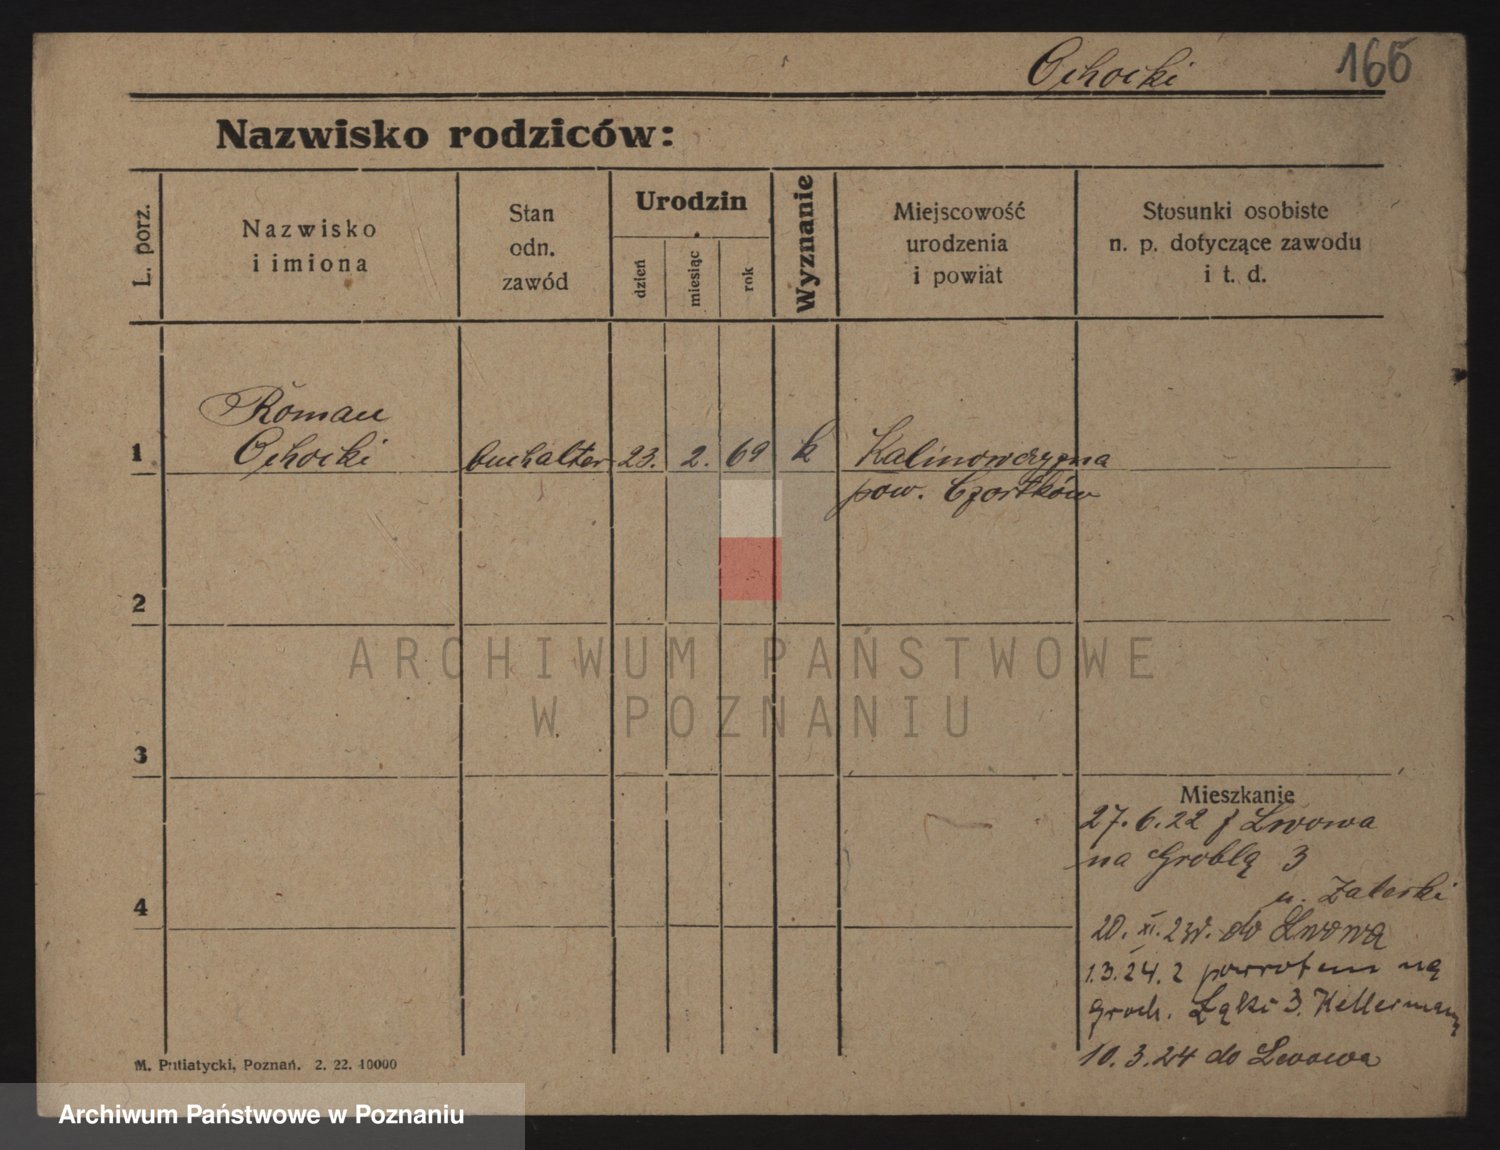 Ochocki 166
Nazwisko rodziców:
L. porz.
Nazwisko
i imiona
Stan
odn.
zawód
Urodzin
dzień
miesiąc
rok
Wyznanie
Miejscowość
urodzenia
i powiat
Stosunki osobiste
n. p. dotyczące zawodu
i t. d.
Roman
1 Ochocki buchalter 23. 2. 69 k Kalinowczyzna
pow. Czortków
2
ARCHIWUM PAŃSTWOWE
W POZNANIU
3
Mieszkanie
27.6.22 z Lwowa
na Groblą 3
u. Zaleski
4
20. XI. 23r. do Lwowa
1.3.24. z powrotem na
Groch. Łąki 3. Kellerman
10.3.24 do Lwowa
M. Putiatycki, Poznań. 2. 22. 10000
Archiwum Państwowe w Poznaniu